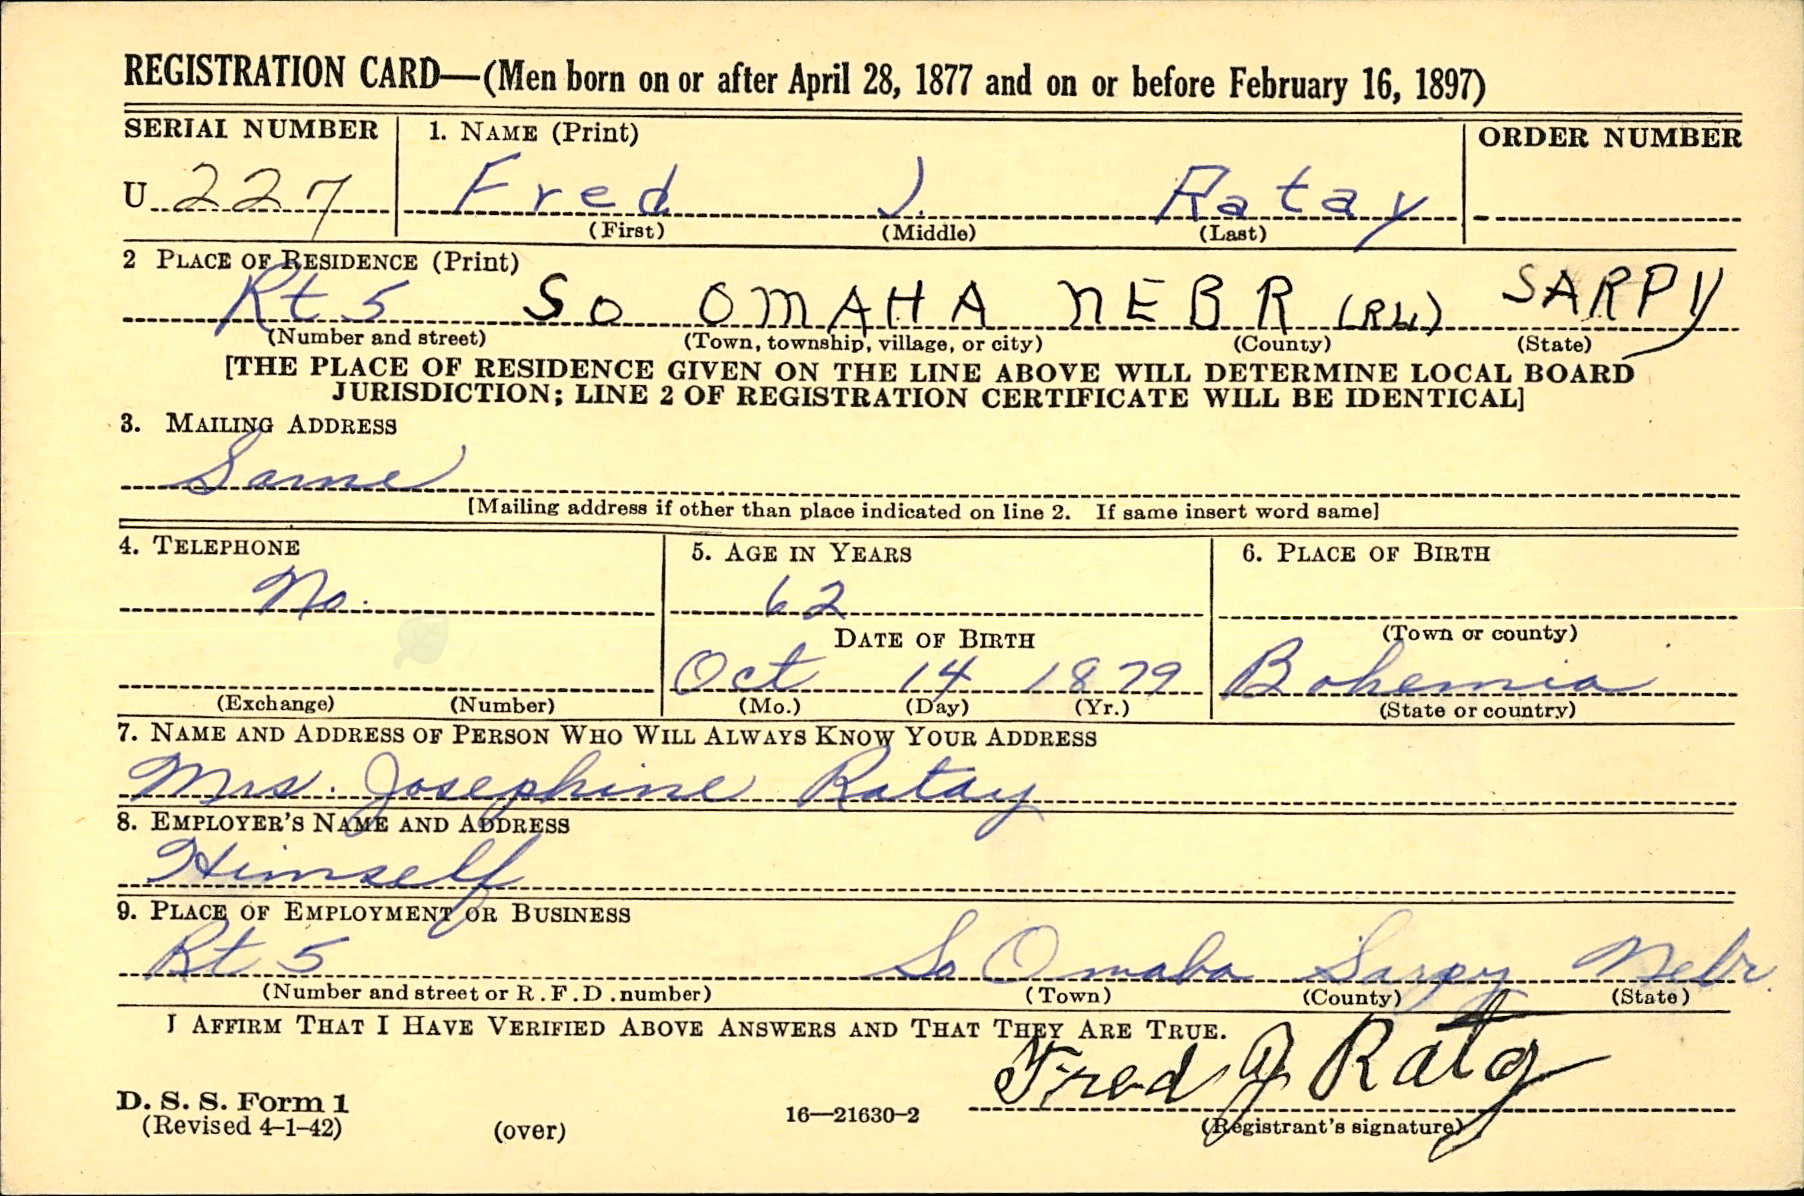 REGISTRATION CARD—(Men born on or after April 28, 1877 and on or before February 16, 1897)
SERIAL NUMBER 1. NAME (Print) ORDER NUMBER
U 227 Fred J. Ratay
(First) (Middle) (Last)
2 PLACE OF RESIDENCE (Print)
Rt 5 SO OMAHA NEBR SARPY
(Number and street) (Town, township, village, or city) (County) (State)
[THE PLACE OF RESIDENCE GIVEN ON THE LINE ABOVE WILL DETERMINE LOCAL BOARD
JURISDICTION; LINE 2 OF REGISTRATION CERTIFICATE WILL BE IDENTICAL]
3. MAILING ADDRESS
Same
[Mailing address if other than place indicated on line 2. If same insert word same]
4. TELEPHONE 5. AGE IN YEARS 6. PLACE OF BIRTH
No. 62
DATE OF BIRTH (Town or county)
Oct 14 1879 Bohemia
(Exchange) (Number) (Mo.) (Day) (Yr.) (State or country)
7. NAME AND ADDRESS OF PERSON WHO WILL ALWAYS KNOW YOUR ADDRESS
Mrs. Josephine Ratay
8. EMPLOYER'S NAME AND ADDRESS
Himself
9. PLACE OF EMPLOYMENT OR BUSINESS
Rt 5 So Omaha Sarpy Nebr.
(Number and street or R.F.D. number) (Town) (County) (State)
I AFFIRM THAT I HAVE VERIFIED ABOVE ANSWERS AND THAT THEY ARE TRUE.
Fred J Ratay
D. S. S. Form 1
(Revised 4-1-42) (over) 16—21630-2 (Registrant's signature)